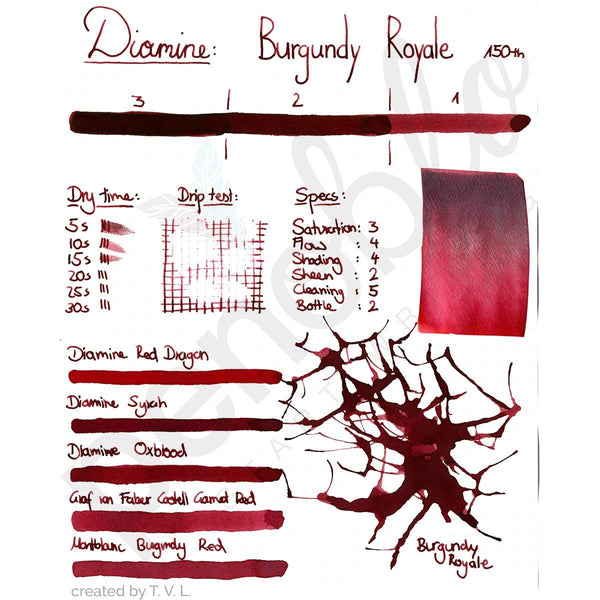 Diamine: Burgundy Royale 150th
3 2 1
Dry time:
5s
10s
15s
20s
25s
30s
Drip test:
Specs:
Saturation: 3
Flow : 4
Shading : 4
Sheen : 2
Cleaning : 5
Bottle : 2
Diamine Red Dragon
Diamine Syrah
Diamine Oxblood
Graf von Faber Castell Garnet Red
Montblanc Burgundy Red
Burgundy
Royale
created by T. V. L.